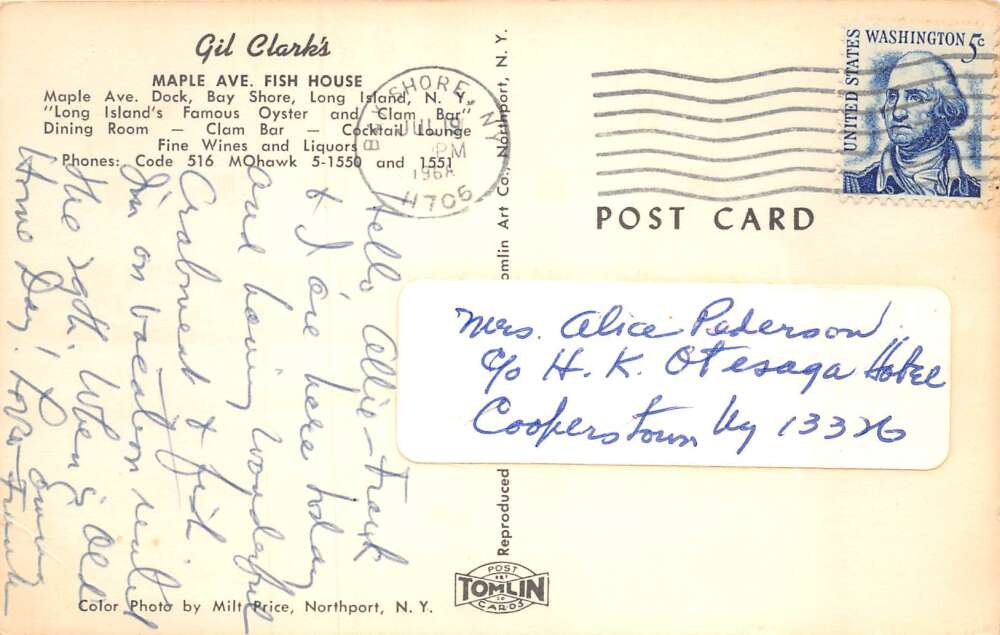 Gil Clark's
MAPLE AVE. FISH HOUSE
Maple Ave. Dock, Bay Shore, Long Island, N. Y.
"Long Island's Famous Oyster and Clam Bar"
Dining Room — Clam Bar — Cocktail Lounge
Fine Wines and Liquors
Phones: Code 516 MOhawk 5-1550 and 1551
BAY SHORE, NY
JUL 19
PM
1968
11706
UNITED STATES
WASHINGTON 5c
POST CARD
Hello Allie – Frank
& I are here today
and having wonderful
Crabmeat & fish.
I'm on vacation until
the 29th when is Old
Home Day!
Love – 
Mrs. Alice Pederson
c/o H. K. Otesaga Hotel
Cooperstown Ny 13326
Reproduced
Tomlin Art Co., Northport, N. Y.
POST
ART
TOMLIN
CO
CARDS
Color Photo by Milt Price, Northport, N. Y.